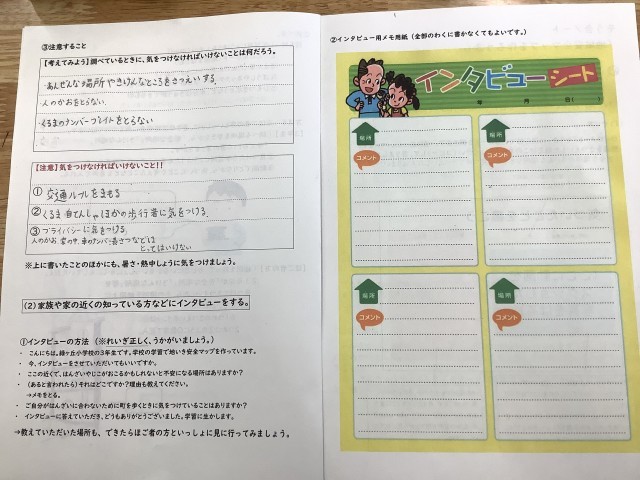 ③注意すること
【考えてみよう】調べているときに、気をつけなければいけないことは何だろう。
・あんぜんな場所やきけんなところをさつえいする
・人のかおをとらない
・くるまのナンバープレイトをとらない
【注意】気をつけなければいけないこと!!
① 交通ルールをまもる
② くるま自てんしゃほかの歩行者に気をつける
③ プライバシーに気をつける
人のかお 家の中、車のナンバー表さつなどは
とってはいけない
※上に書いたことのほかにも、暑さ・熱中しょうに気をつけましょう。
(2)家族や家の近くの知っている方などにインタビューをする。
①インタビューの方法 (※れいぎ正しく、うかがいましょう。)
・ こんにちは。緑ヶ丘小学校の3年生です。学校の学習で地いき安全マップを作っています。
・ 今、インタビューをさせていただいてもいいですか。
・ ここの近くで、はんざいやじこがおこるかもしれないと不安になる場所はありますか?
・ (あると言われたら)それはどこですか?理由も教えてください。
→メモをとる。
・ ご自分がはんざいに合わないために町を歩くときに気をつけていることはありますか?
・ インタビューに答えていただき、どうもありがとうございました。学習に生かします。
⇒教えていただいた場所も、できたらほご者の方といっしょに見に行ってみましょう。
②インタビュー用メモ用紙(全部のわくに書かなくてもよいです。)
インタビューシート
年 月 日( )
場所
コメント
場所
コメント
場所
コメント
場所
コメント